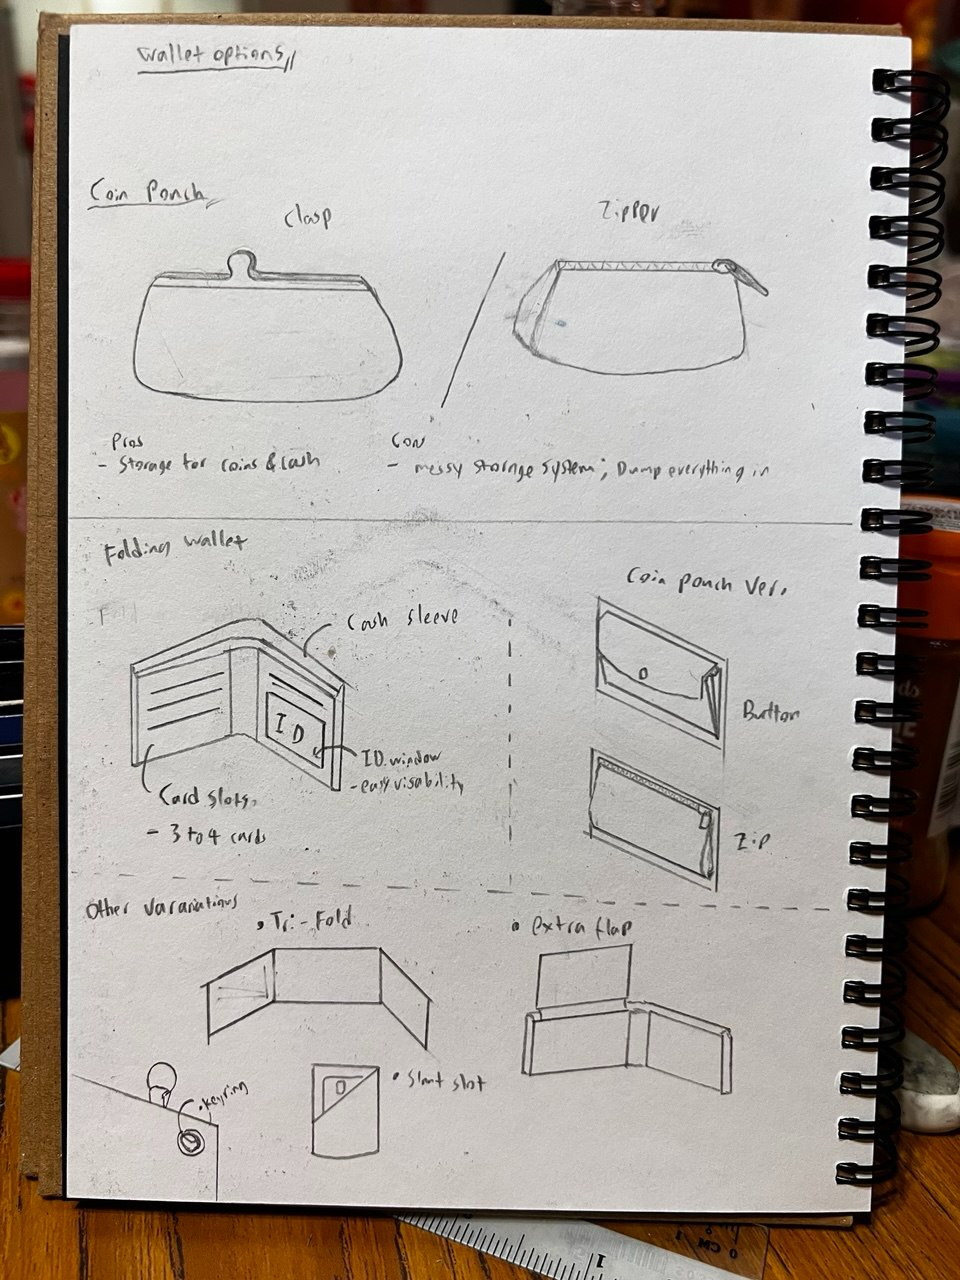 Wallet options
Coin Pouch
Clasp
Zipper
Pros
- Storage for coins & cash
Con
- messy storage system; Dump everything in
Folding wallet
Coin pouch ver.
Cash sleeve
ID
Button
ID window
- easy visability
Card slots.
- 3 to 4 cards
Zip
Other vararations
• Tri-Fold
• extra flap
• slant slot
• keyring
CM
0
1